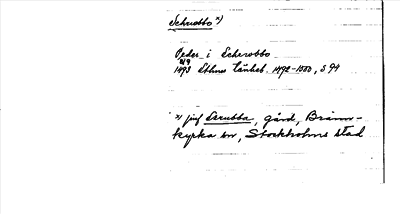 Scherobbo x)
Peder i Scherobbo
8/9
1493 Sthms tänkeb. 1492-1500, s 99
x) jmf Skrubba, gård, Bränn-
kyrka sn, Stockholms stad